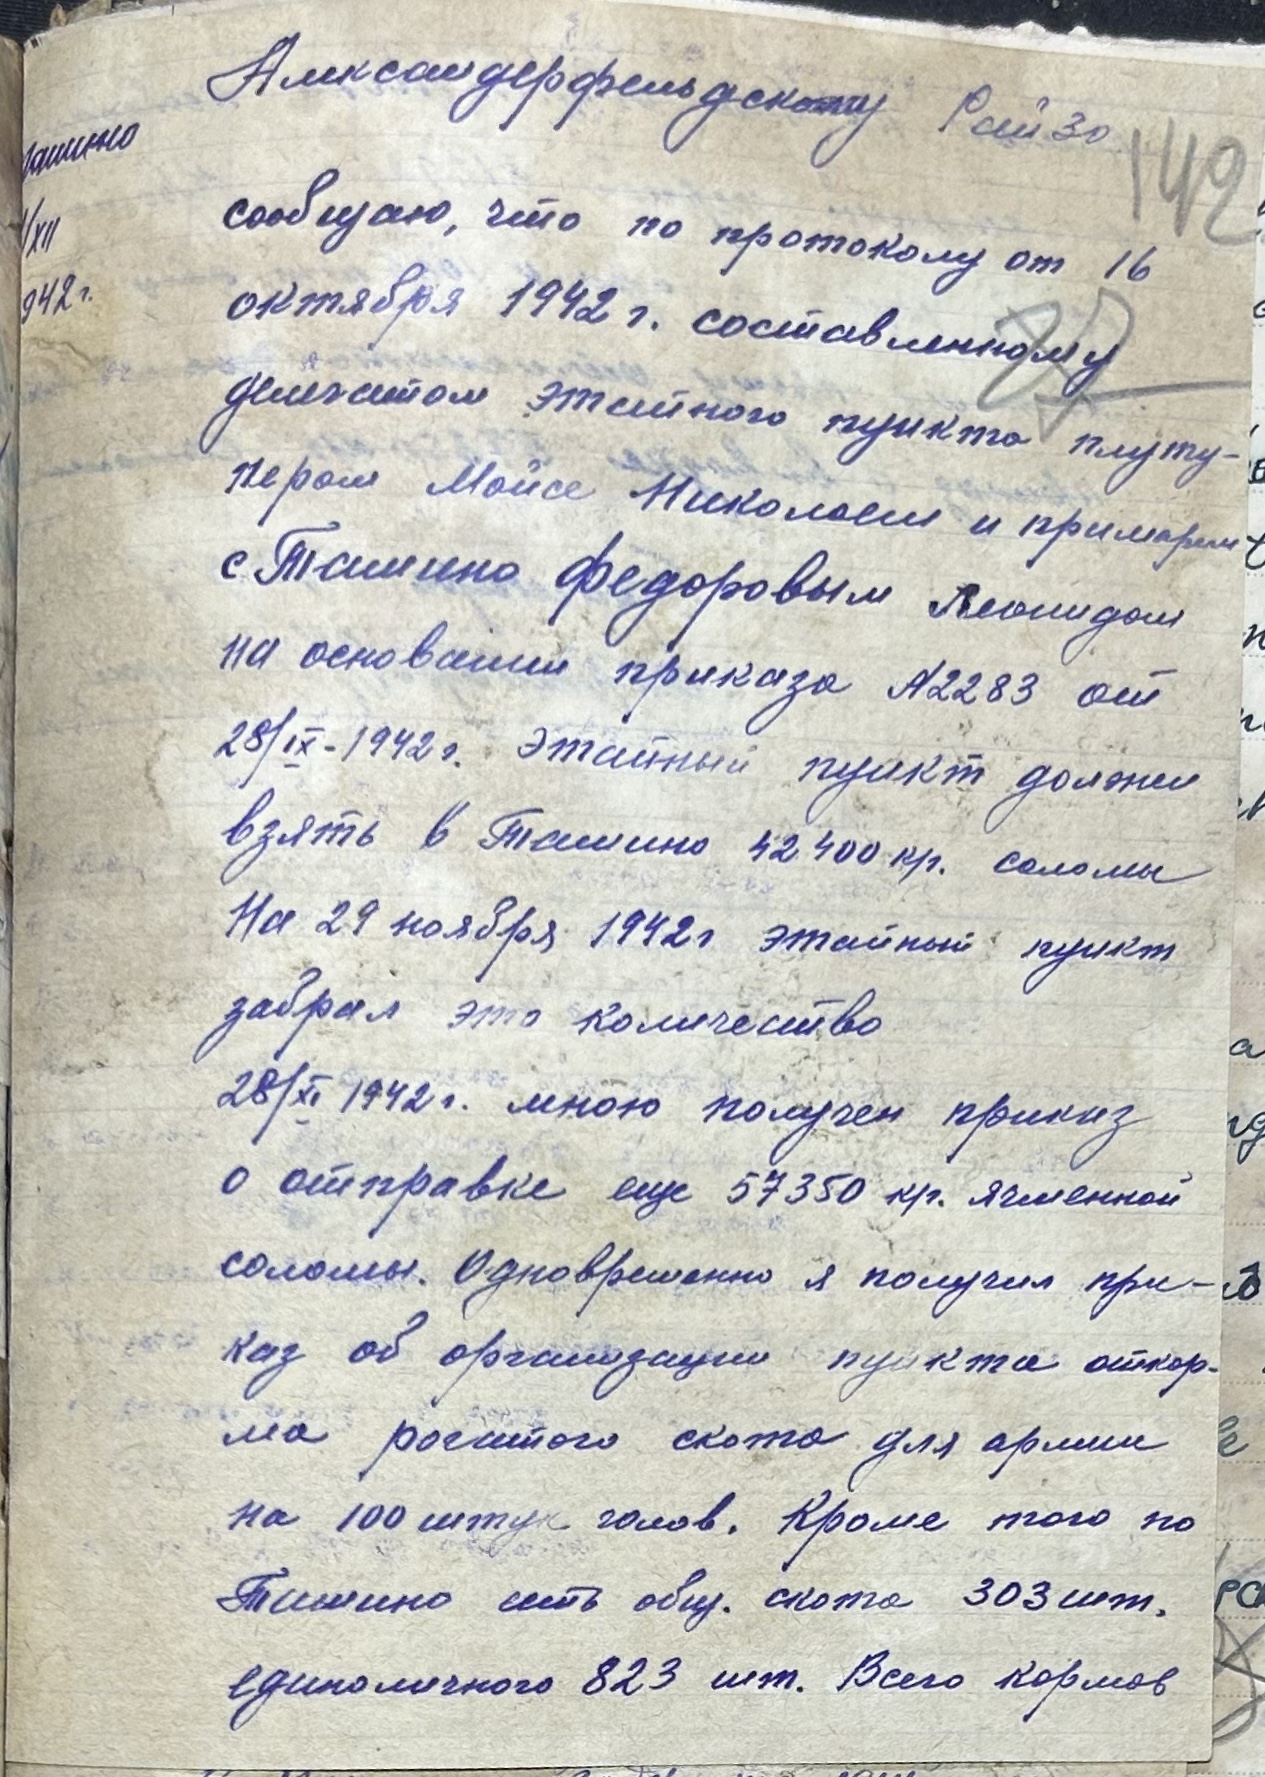 Александерфельдскому РайЗо
142
Ташино
/XII
942 г.
сообщаю, что по протокому от 16
октября 1942 г. составленному
делегатом этапного пункта плуту-
нером Мойсе Николаем и примарем
с Ташино Федоровым Леонидом
на основании приказа №2283 от
28/IX-1942 г. этапный пункт должен
взять в Ташино 42400 кр. соломы
На 29 ноября 1942 г этапный пункт
забрал это количество
28/XI 1942 г. мною получен приказ
о отправке еще 57350 кр. ячменной
соломы. Одновременно я получил при-
каз об организации пункта откор-
ма рогатого скота для армии
на 100 штук голов. Кроме того по
Ташино есть общ. скота 303 шт.
единоличного 823 шт. Всего кормов